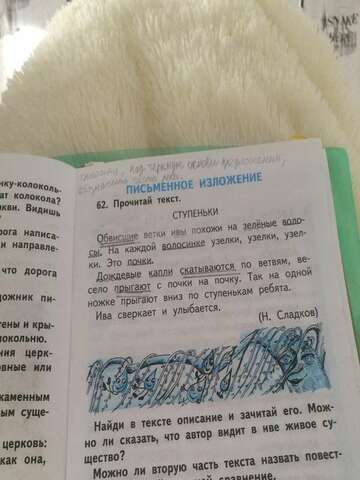 SNAKE
нку-колоколь-
ат колокола?
кви. Видишь
?
рога написа-
и направле-
что дорога
дожник пи-
тены и кры-
локольню.
ния церк-
овные или
каменным
вым суще-
церковь:
как она,
под
ПИСЬМЕННОЕ ИЗЛОЖЕНИЕ
62. Прочитай текст.
СТУПЕНЬКИ
Обвисшие ветки ивы похожи на зелёные воло-
сы. На каждой волосинке узелки, узелки, узел-
ки. Это почки.
Дождевые капли скатываются по ветвям, ве-
село прыгают с почки на почку. Так на одной
ножке прыгают вниз по ступенькам ребята.
Ива сверкает и улыбается.
(Н. Сладков)
Найди в тексте описание и зачитай его. Мож-
но ли сказать, что автор видит в иве живое су-
щество?
Можно ли вторую часть текста назвать повест-
сравнение.